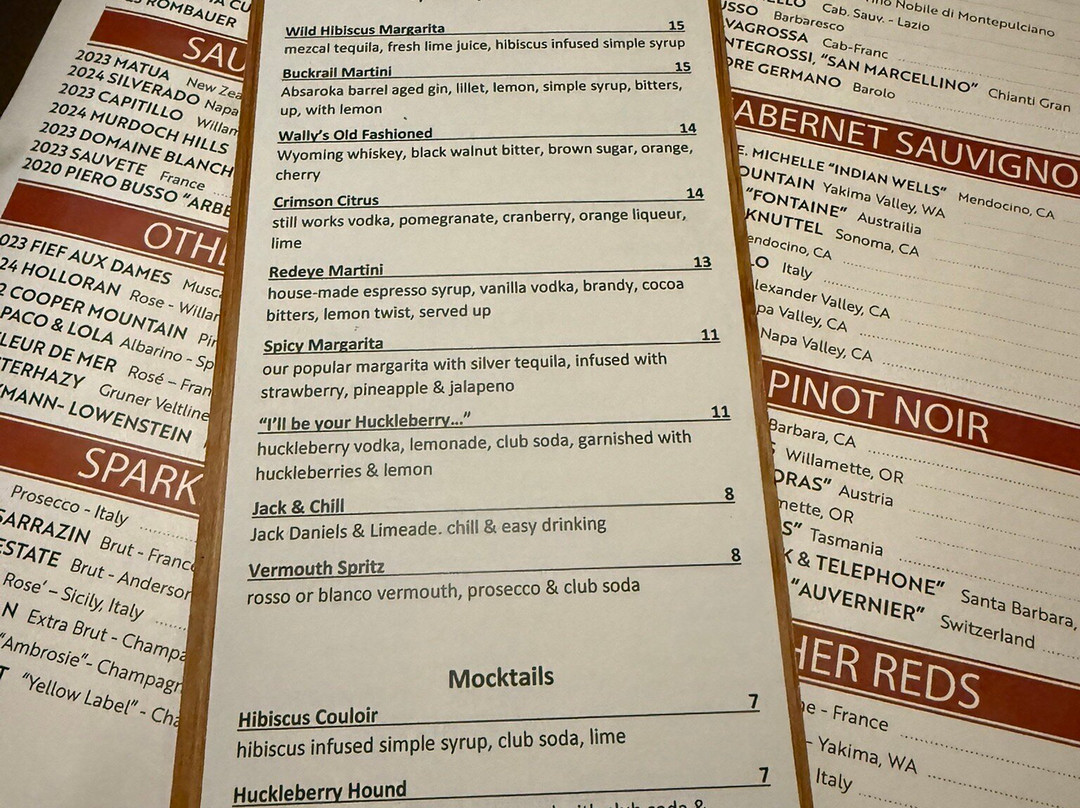 ROMBAUER
SAU
2023 MATUA New Zea
2024 SILVERADO Napa
2023 CAPITILLO Willam
2024 MURDOCH HILLS
2023 DOMAINE BLANCH
2023 SAUVETE France
2020 PIERO BUSSO "ARBE
OTH
023 FIEF AUX DAMES Musc
24 HOLLORAN Rose - Willar
2 COOPER MOUNTAIN Pin
PACO & LOLA Albarino - Sp
LEUR DE MER Rosé – Fran
TERHAZY Gruner Veltline
MANN- LOWENSTEIN
SPARK
Prosecco - Italy
SARRAZIN Brut - France
ESTATE Brut - Anderson
Rose' – Sicily, Italy
N Extra Brut - Champa
"Ambrosie"- Champagn
T "Yellow Label" - Cha
Wild Hibiscus Margarita 15
mezcal tequila, fresh lime juice, hibiscus infused simple syrup
Buckrail Martini 15
Absaroka barrel aged gin, lillet, lemon, simple syrup, bitters,
up, with lemon
Wally's Old Fashioned 14
Wyoming whiskey, black walnut bitter, brown sugar, orange,
cherry
Crimson Citrus 14
still works vodka, pomegranate, cranberry, orange liqueur,
lime
Redeye Martini 13
house-made espresso syrup, vanilla vodka, brandy, cocoa
bitters, lemon twist, served up
Spicy Margarita 11
our popular margarita with silver tequila, infused with
strawberry, pineapple & jalapeno
"I'll be your Huckleberry..." 11
huckleberry vodka, lemonade, club soda, garnished with
huckleberries & lemon
Jack & Chill 8
Jack Daniels & Limeade. chill & easy drinking
Vermouth Spritz 8
rosso or blanco vermouth, prosecco & club soda
Mocktails
Hibiscus Couloir 7
hibiscus infused simple syrup, club soda, lime
Huckleberry Hound 7
Nobile di Montepulciano
Cab. Sauv. - Lazio
USSO Barbaresco
VAGROSSA Cab-Franc
NTEGROSSI, "SAN MARCELLINO" Chianti Gran
ORE GERMANO Barolo
ABERNET SAUVIGNO
E. MICHELLE "INDIAN WELLS" Mendocino, CA
OUNTAIN Yakima Valley, WA
"FONTAINE" Austrailia
KNUTTEL Sonoma, CA
endocino, CA
LO Italy
lexander Valley, CA
pa Valley, CA
Napa Valley, CA
PINOT NOIR
Barbara, CA
Willamette, OR
DRAS" Austria
mette, OR
S" Tasmania
K & TELEPHONE" Santa Barbara,
"AUVERNIER" Switzerland
HER REDS
ne - France
- Yakima, WA
Italy